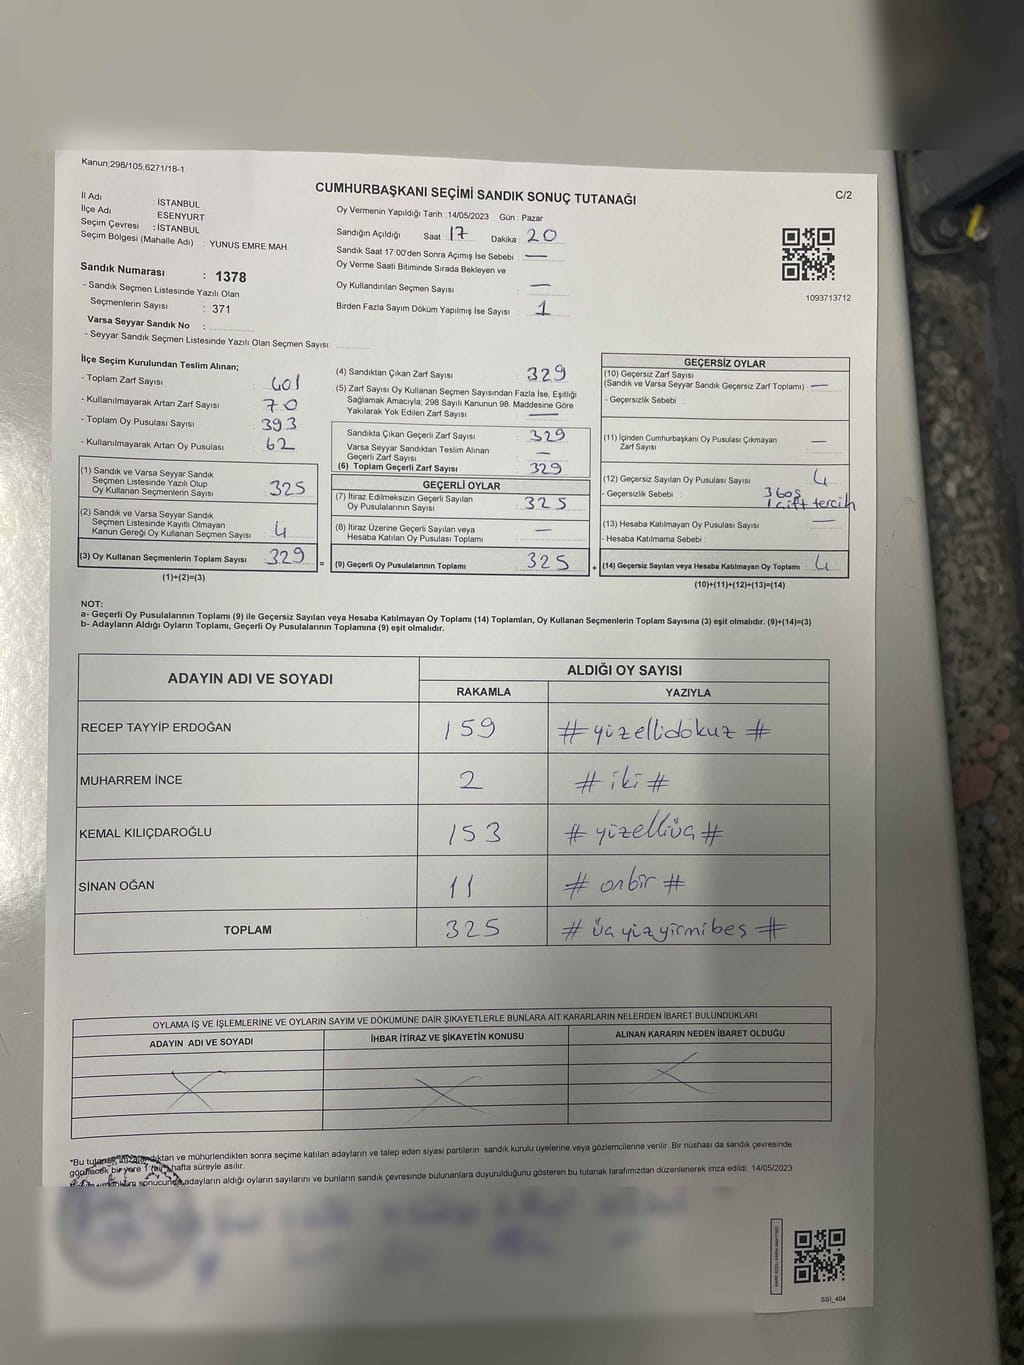 Kanun;298/105;6271/18-1
CUMHURBAŞKANI SEÇİMİ SANDIK SONUÇ TUTANAĞI
C/2
İl Adı : İSTANBUL
İlçe Adı : ESENYURT
Seçim Çevresi : İSTANBUL
Seçim Bölgesi (Mahalle Adı) : YUNUS EMRE MAH.
Sandık Numarası : 1378
- Sandık Seçmen Listesinde Yazılı Olan
Seçmenlerin Sayısı : 371
Varsa Seyyar Sandık No :
- Seyyar Sandık Seçmen Listesinde Yazılı Olan Seçmen Sayısı:
Oy Vermenin Yapıldığı Tarih : 14/05/2023 Gün : Pazar
Sandığın Açıldığı Saat : 17 Dakika : 20
Sandık Saat 17:00'den Sonra Açımış İse Sebebi : —
Oy Verme Saati Bitiminde Sırada Bekleyen ve
Oy Kullandırılan Seçmen Sayısı : —
Birden Fazla Sayım Döküm Yapılmış İse Sayısı : 1
1093713712
İlçe Seçim Kurulundan Teslim Alınan;
- Toplam Zarf Sayısı : 401
- Kullanılmayarak Artan Zarf Sayısı : 70
- Toplam Oy Pusulası Sayısı : 393
- Kullanılmayarak Artan Oy Pusulası : 62
(1) Sandık ve Varsa Seyyar Sandık
Seçmen Listesinde Yazılı Olup
Oy Kullanan Seçmenlerin Sayısı : 325
(2) Sandık ve Varsa Seyyar Sandık
Seçmen Listesinde Kayıtlı Olmayan
Kanun Gereği Oy Kullanan Seçmen Sayısı : 4
(3) Oy Kullanan Seçmenlerin Toplam Sayısı : 329 =
(1)+(2)=(3)
(4) Sandıktan Çıkan Zarf Sayısı : 329
(5) Zarf Sayısı Oy Kullanan Seçmen Sayısından Fazla İse, Eşitliği
Sağlamak Amacıyla; 298 Sayılı Kanunun 98. Maddesine Göre
Yakılarak Yok Edilen Zarf Sayısı : —
Sandıkta Çıkan Geçerli Zarf Sayısı : 329
Varsa Seyyar Sandıktan Teslim Alınan
Geçerli Zarf Sayısı : —
(6) Toplam Geçerli Zarf Sayısı : 329
GEÇERLİ OYLAR
(7) İtiraz Edilmeksizin Geçerli Sayılan
Oy Pusulalarının Sayısı : 325
(8) İtiraz Üzerine Geçerli Sayılan veya
Hesaba Katılan Oy Pusulası Toplamı : —
(9) Geçerli Oy Pusulalarının Toplamı : 325 +
GEÇERSİZ OYLAR
(10) Geçersiz Zarf Sayısı
(Sandık ve Varsa Seyyar Sandık Geçersiz Zarf Toplamı) : —
- Geçersizlik Sebebi :
(11) İçinden Cumhurbaşkanı Oy Pusulası Çıkmayan
Zarf Sayısı : —
(12) Geçersiz Sayılan Oy Pusulası Sayısı : 4
- Geçersizlik Sebebi : 3 boş
1 çift tercih
(13) Hesaba Katılmayan Oy Pusulası Sayısı : —
- Hesaba Katılmama Sebebi :
(14) Geçersiz Sayılan veya Hesaba Katılmayan Oy Toplamı : 4
(10)+(11)+(12)+(13)=(14)
NOT:
a- Geçerli Oy Pusulalarının Toplamı (9) ile Geçersiz Sayılan veya Hesaba Katılmayan Oy Toplamı (14) Toplamları, Oy Kullanan Seçmenlerin Toplam Sayısına (3) eşit olmalıdır. (9)+(14)=(3)
b- Adayların Aldığı Oyların Toplamı, Geçerli Oy Pusulalarının Toplamına (9) eşit olmalıdır.
ADAYIN ADI VE SOYADI ALDIĞI OY SAYISI
RAKAMLA YAZIYLA
RECEP TAYYİP ERDOĞAN 159 # yüzellidokuz #
MUHARREM İNCE 2 # iki #
KEMAL KILIÇDAROĞLU 153 # yüzelliüç #
SİNAN OĞAN 11 # onbir #
TOPLAM 325 # üçyüzyirmibeş #
OYLAMA İŞ VE İŞLEMLERİNE VE OYLARIN SAYIM VE DÖKÜMÜNE DAİR ŞİKAYETLERLE BUNLARA AİT KARARLARIN NELERDEN İBARET BULUNDUKLARI
ADAYIN ADI VE SOYADI İHBAR İTİRAZ VE ŞİKAYETİN KONUSU ALINAN KARARIN NEDEN İBARET OLDUĞU
*Bu tutanak imzalandıktan ve mühürlendikten sonra seçime katılan adayların ve talep eden siyasi partilerin sandık kurulu üyelerine veya gözlemcilerine verilir. Bir nüshası da sandık çevresinde
görülecek bir yere 1 hafta süreyle asılır.
sonucunda adayların aldığı oyların sayılarını ve bunların sandık çevresinde bulunanlara duyurulduğunu gösteren bu tutanak tarafımızdan düzenlenerek imza edildi. 14/05/2023
SSI_404